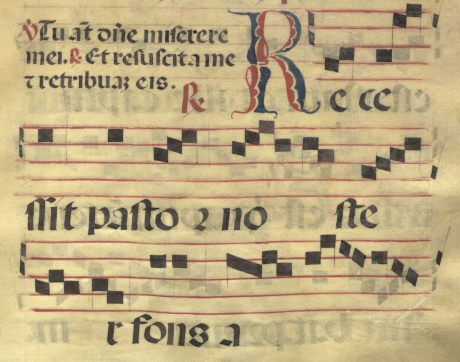 ℣ Tu aūt dñe miserere
mei. ℟. Et resuscita me
⁊ retribuaꝫ eis.
℟. Re ce
ssit pasto ꝛ no ste
r fons a